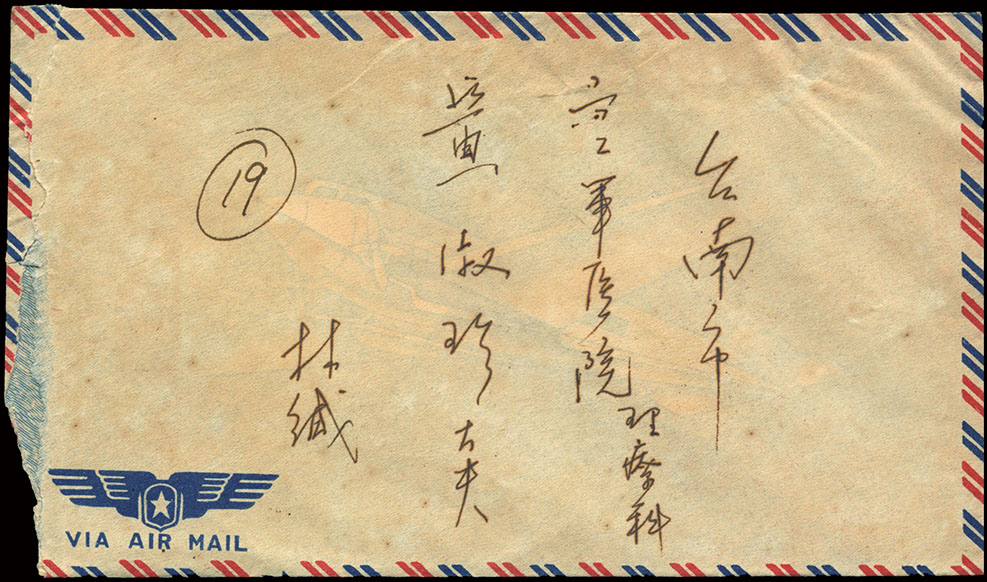 台南市
空軍医院理療科
黃淑珍大夫
林緘
19
VIA AIR MAIL